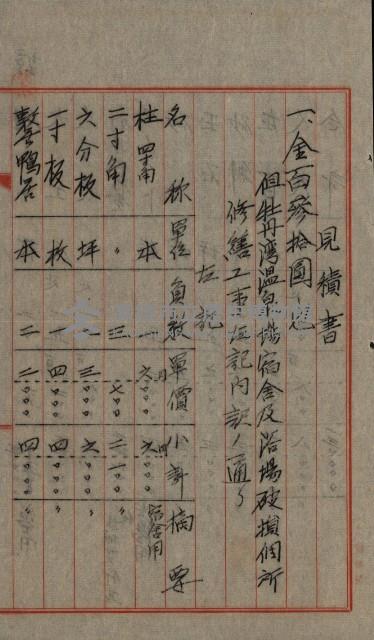 見積書
一、金百參拾圓也
但牡丹湾温泉場宿舎及浴場破損個所
修繕工事左記内訳ノ通リ
左記
名称 單位 員数 單價 小計 摘要
柱 本 六 六 宿舎用
二寸角 〃 三 七〇〇 二一〇〇 〃
六分板 坪 二 三〇〇〇 六〇〇〇 〃
一寸板 枚 一 四〇〇〇 四〇〇〇 〃
鴨居 本 二 二〇〇〇 四〇〇〇 〃